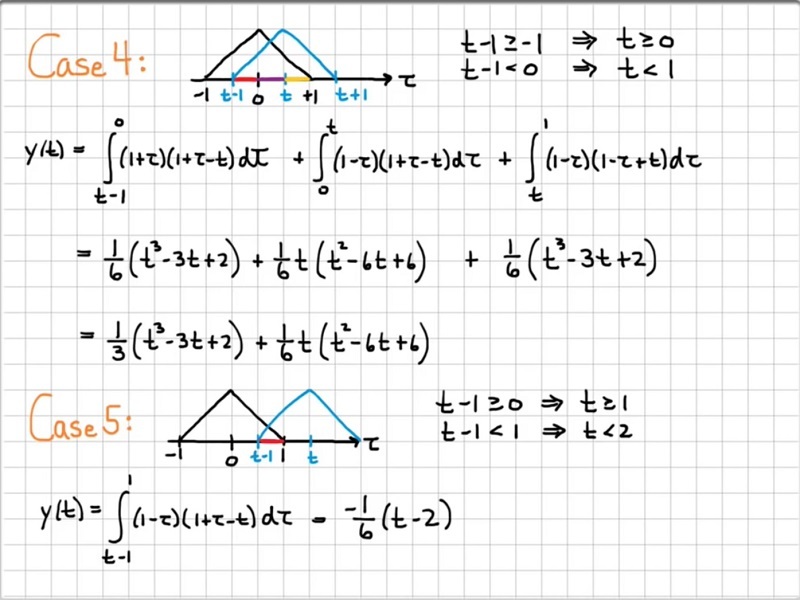 Case 4:
-1 t-1 0 t +1 t+1 τ
t-1≥-1 ⇒ t≥0
t-1<0 ⇒ t<1
y(t) = ∫_{t-1}^{0} (1+τ)(1+τ-t)dτ + ∫_{0}^{t} (1-τ)(1+τ-t)dτ + ∫_{t}^{1} (1-τ)(1-τ+t)dτ
= 1/6 (t³-3t+2) + 1/6 t(t²-6t+6) + 1/6 (t³-3t+2)
= 1/3 (t³-3t+2) + 1/6 t(t²-6t+6)
Case 5:
-1 0 t-1 1 t τ
t-1≥0 ⇒ t≥1
t-1<1 ⇒ t<2
y(t) = ∫_{t-1}^{1} (1-τ)(1+τ-t)dτ = -1/6 (t-2)